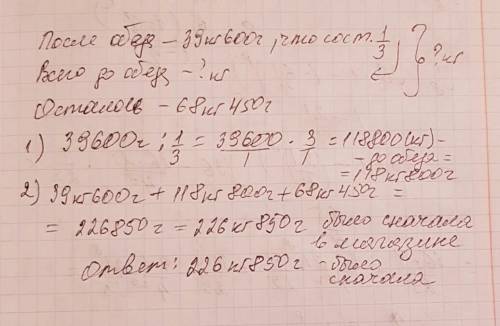 После обеда – 39кг600г, что сост. 1/3
Всего до обеда – ? кг } ? кг
Осталось – 68кг450г
1) 39600г : 1/3 = 39600/1 · 3/1 = 118800(кг) –
– до обеда =
= 118кг800г
2) 39кг600г + 118кг800г + 68кг450г =
= 226850г = 226кг850г было сначала
в магазине
Ответ: 226кг850г – было
сначала